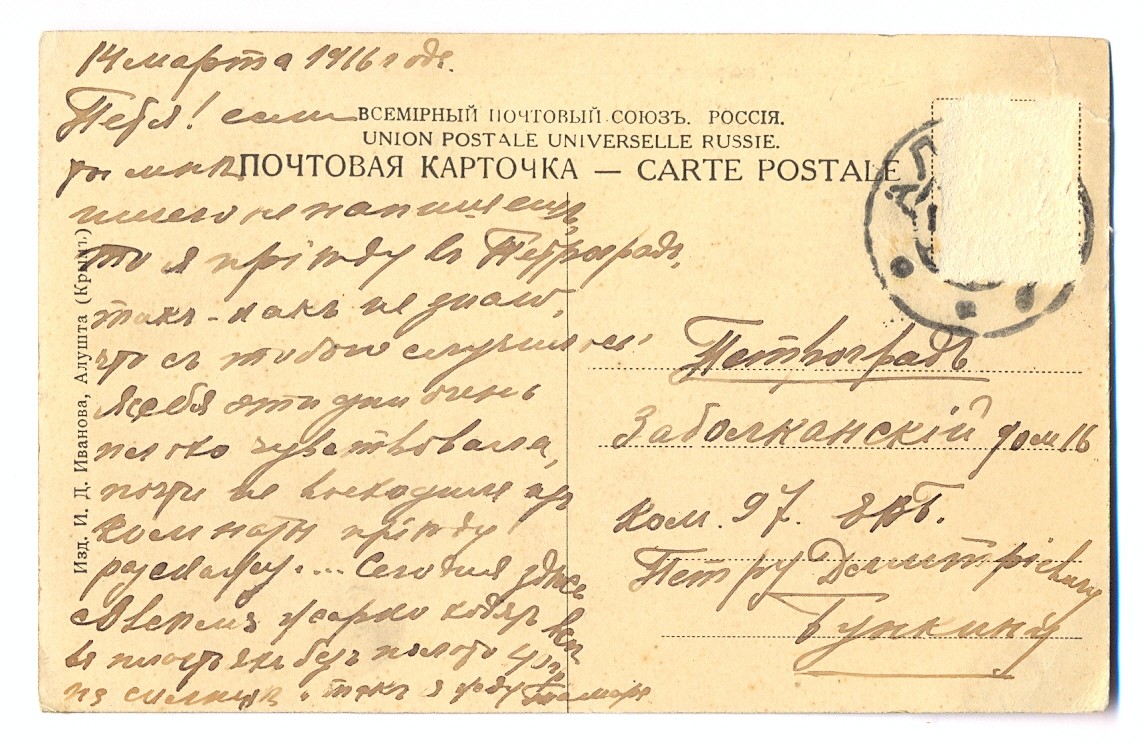 14 марта 1916 годе.
Петя! если
ты мне
ничего не напишешь,
то я прiѣду въ Петроградъ,
такъ-какъ не знаю,
что съ тобою случилось!
Я себя эти дни очень
плохо чувствовала,
почти не выходила из
комнаты прiѣду
разскажу.... Сегодня здѣсь
совсем жарко ходят
въ платьях без пальто
ВСЕМIРНЫЙ ПОЧТОВЫЙ СОЮЗЪ. РОССIЯ.
UNION POSTALE UNIVERSELLE RUSSIE.
ПОЧТОВАЯ КАРТОЧКА — CARTE POSTALE
Изд. И. Д. Иванова, Алушта (Крымъ)
Петроградъ
Заболканскiй дом 16
ком. 97.
Петру Дмитрiевичу